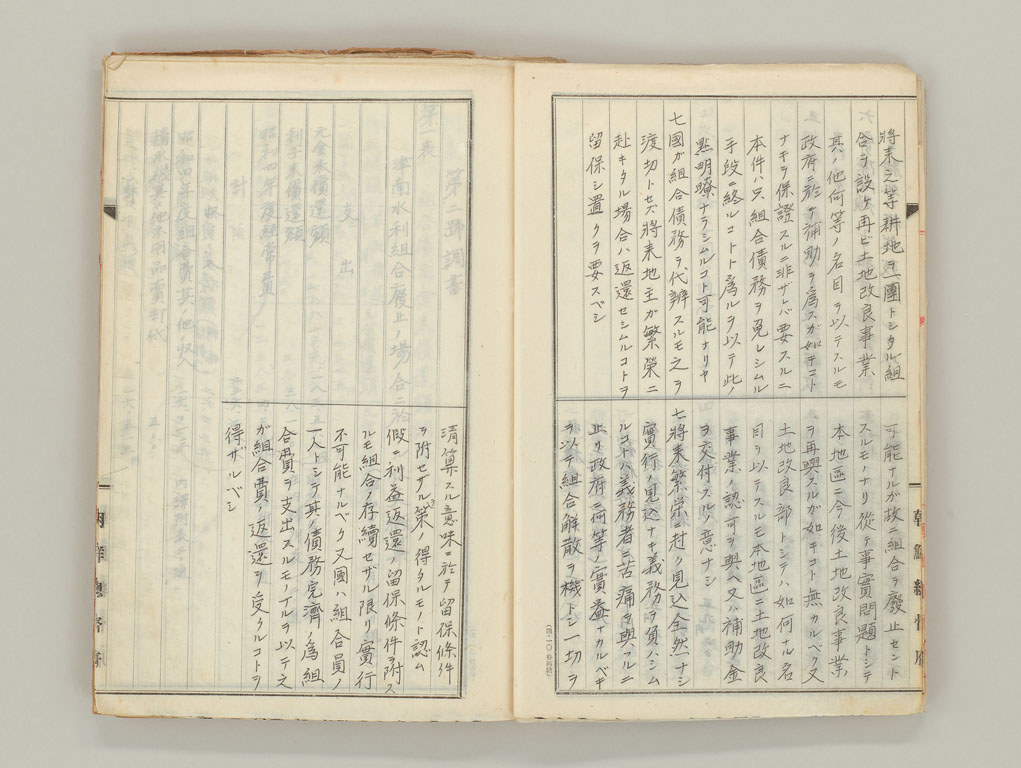 將来之等耕地ヲ一團トシタル組
合ヲ設ケ再ビ土地改良事業
其ノ他何等ノ名目ヲ以テスルモ
政府ニ於テ補助ヲ爲スガ如キコト
ナキヲ保證スルニ非ザレバ要スルニ
本件ハ只組合債務ヲ免レシムル
手段ニ終ルコトト爲ルヲ以テ此ノ
點明瞭ナラシムルコト可能ナリヤ
七國ガ組合債務ヲ代辨スルモ之ヲ
渡切トセズ將来地主ガ繁榮ニ
赴キタル場合ハ返還セシムルコトヲ
留保シ置クヲ要スベシ
可能ナルガ故ニ組合ヲ廢止セント
スルモノナリ從テ事實問題トシテ
本地區ニ今後土地改良事業
ヲ再興スルガ如キコト無カルベク又
土地改良部トシテハ如何ナル名
目ヲ以テスルモ本地區ニ土地改良
事業ノ認可ヲ與ヘ又ハ補助金
ヲ交付スルノ意ナシ
七將来繁榮ニ赴ク見込全然ナシ
實行ノ見込ナキ義務ヲ負ハシム
ルコトハ義務者ニ苦痛ヲ與フルニ
止リ政府ニ何等ノ實益ナカルベキ
ヲ以テ組合解散ヲ機トシ一切ヲ
朝鮮總督府
清算スル意味ニ於テ留保條件
ヲ附セザル策ノ得タルモノト認ム
假ニ利益返還ノ留保條件附ス
ルモ組合ノ存續セザル限リ實行
不可能ナルベク又國ハ組合員ノ
一人トシテ其ノ債務完濟ノ爲組
合費ヲ支出スルモノナルヲ以テ之
ガ組合費ノ返還ヲ受クルコトヲ
得ザルベシ
朝鮮總督府